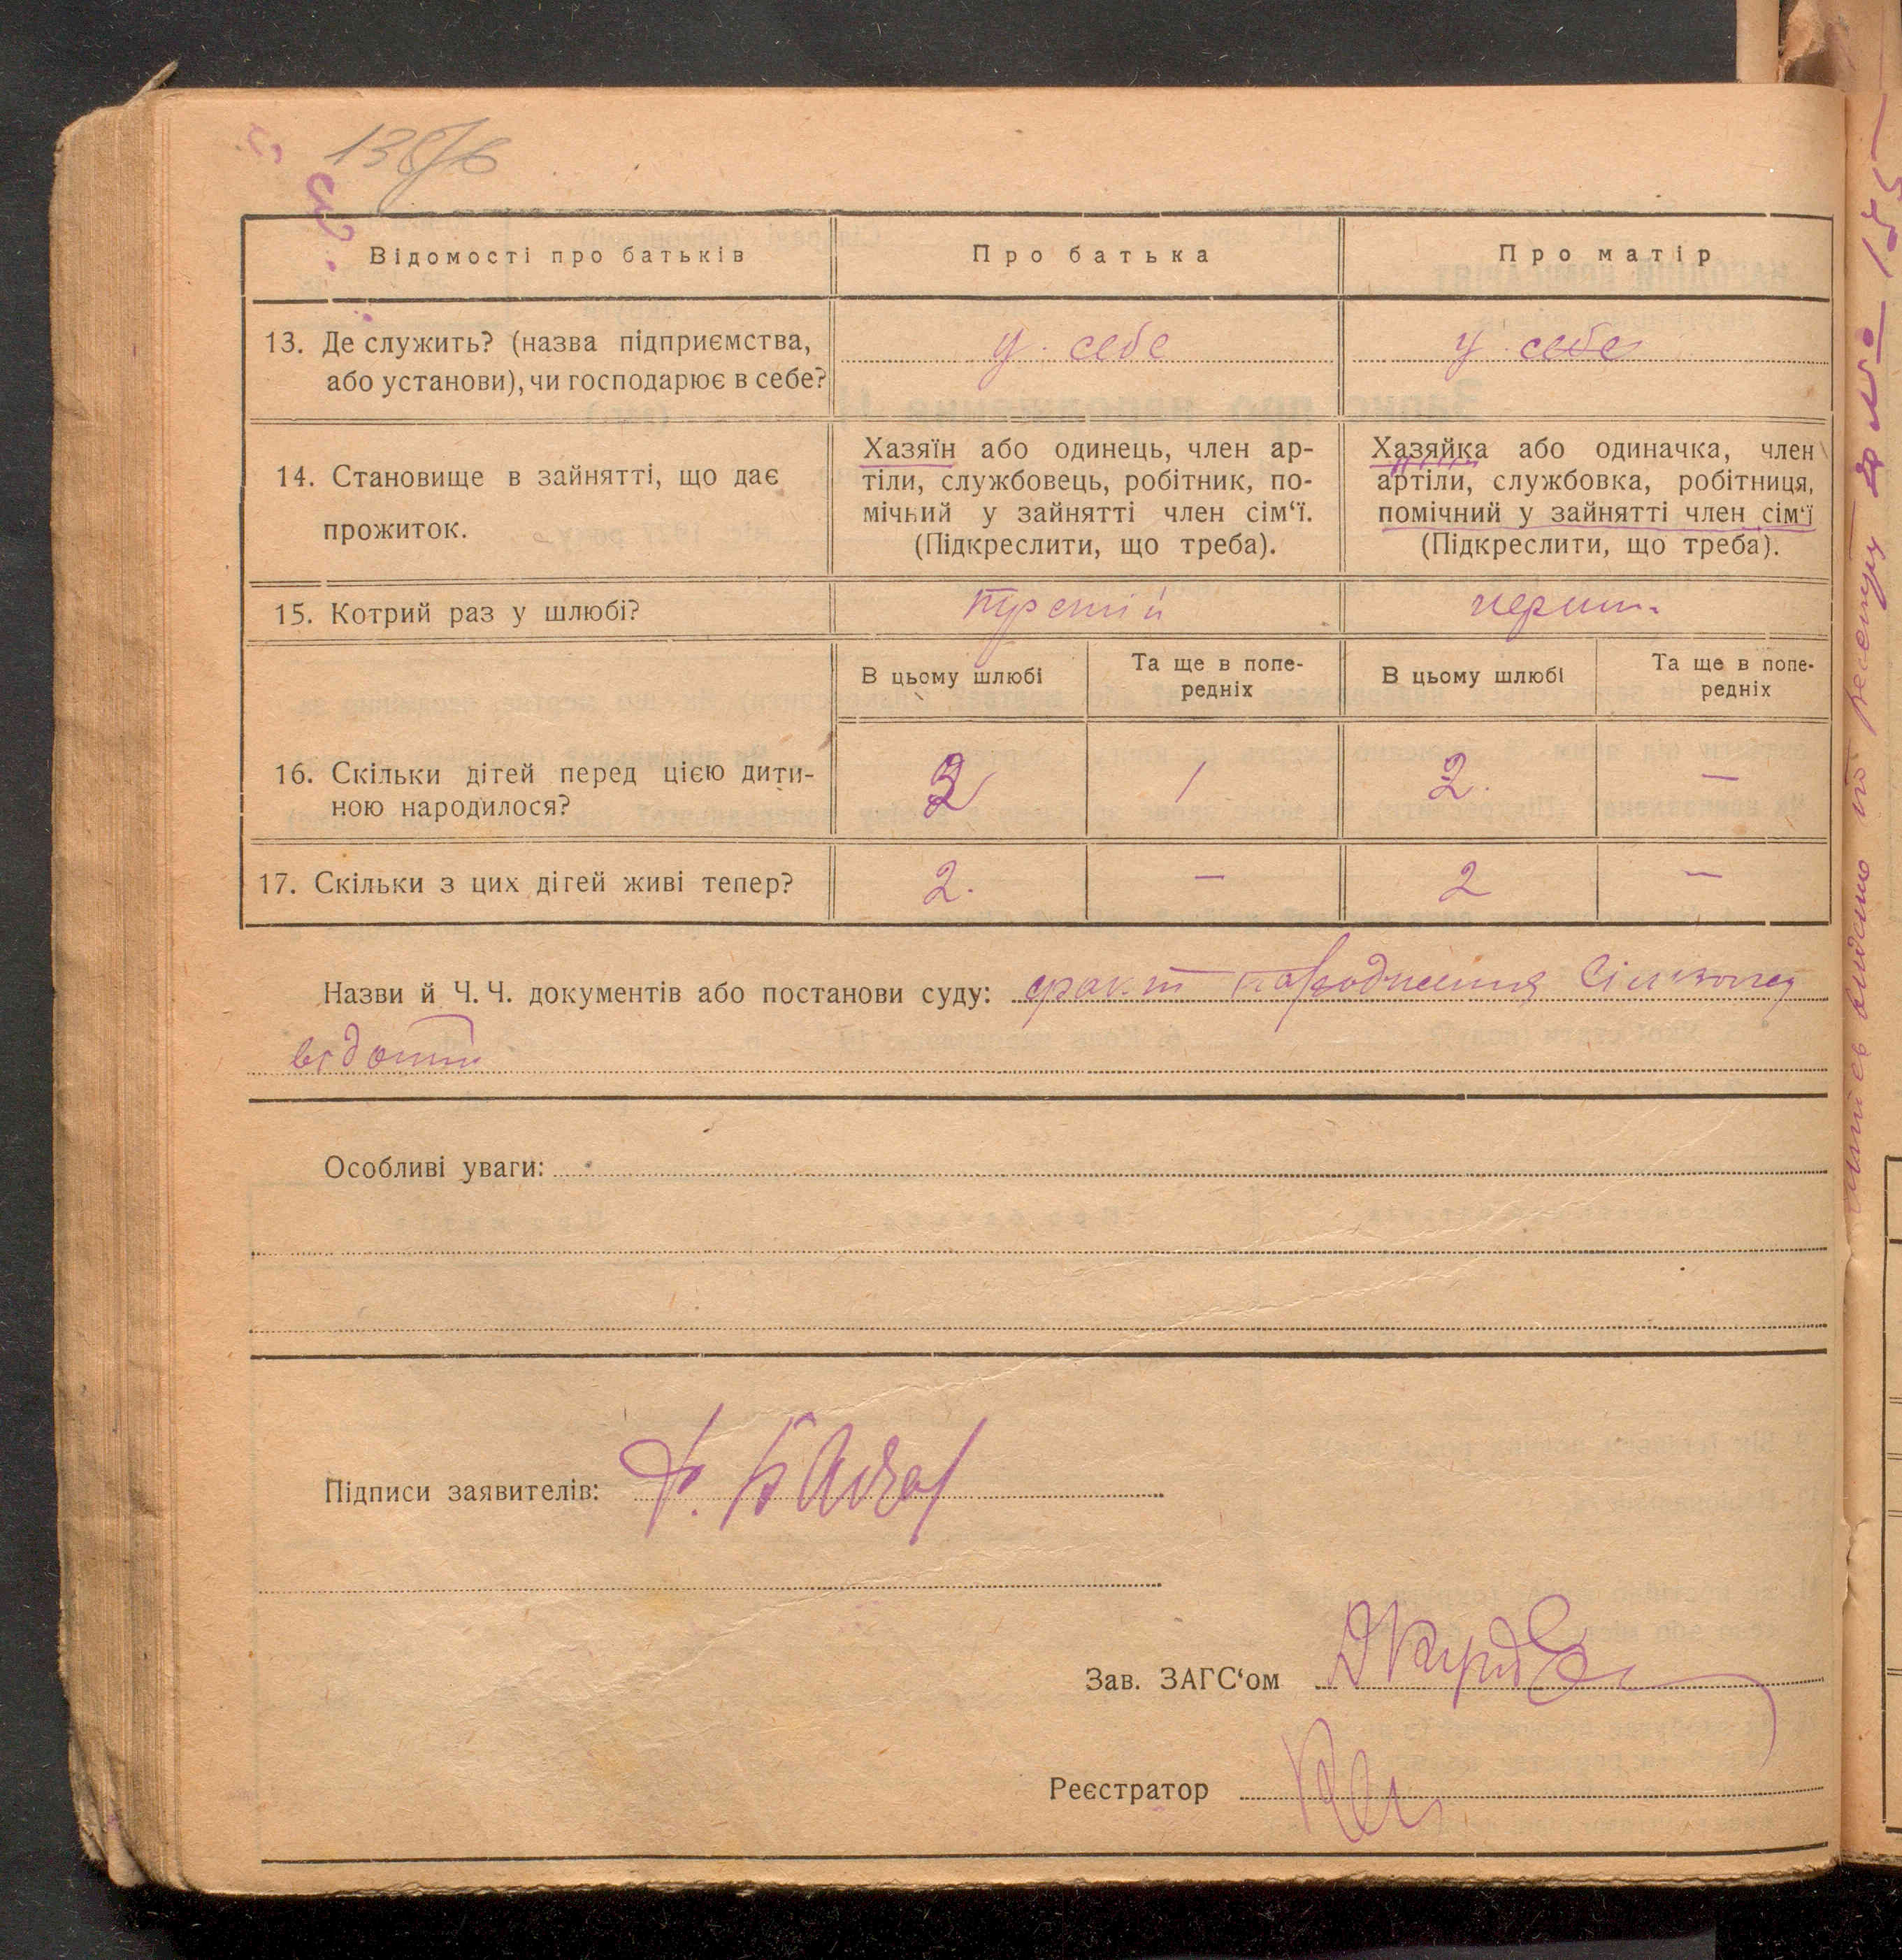 Відомості про батьків
Про батька
Про матір
13. Де служить? (назва підприємства, або установи), чи господарює в себе?
у себе
у себе
14. Становище в зайнятті, що дає прожиток.
Хазяїн або одинець, член ар-
тіли, службовець, робітник, по-
мічний у зайнятті член сім‘ї.
(Підкреслити, що треба).
Хазяйка або одиначка, член
артіли, службовка, робітниця,
помічний у зайнятті член сім‘ї
(Підкреслити, що треба).
15. Котрий раз у шлюбі?
третій
перший
В цьому шлюбі
Та ще в попе-
редніх
В цьому шлюбі
Та ще в попе-
редніх
16. Скільки дітей перед цією дити-
ною народилося?
2
1
2.
—
17. Скільки з цих дітей живі тепер?
2.
—
2
—
Назви й Ч. Ч. документів або постанови суду: факт народження
відомий
Особливі уваги:
Підписи заявителів:
Зав. ЗАГС‘ом
Реєстратор